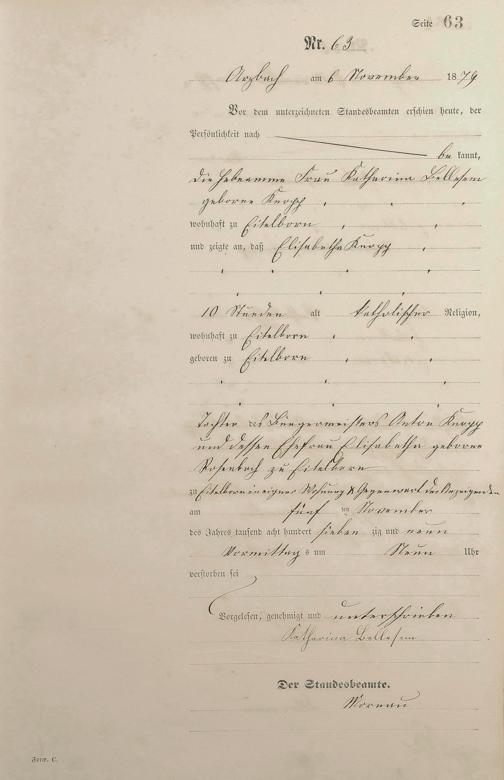 Seite 63
Nr. 63
Arzbach am 6 November 1879
Vor dem unterzeichneten Standesbeamten erschien heute, der
Persönlichkeit nach
be kannt,
die Hebeamme Frau Katharina Bellesem
geborne Knopp
wohnhaft zu Eitelborn
und zeigte an, daß Elisabetha Knopp
10 Stunden alt katholischer Religion,
wohnhaft zu Eitelborn
geboren zu Eitelborn
Tochter des Bürgermeisters Anton Knopp
und dessen Ehefrau Elisabetha geborne
Rosenbach zu Eitelborn
zu Eitelborn in eigner Wohnung & Gegenwart der Anzeigenden
am fünf ten November
des Jahres tausend acht hundert sieben zig und neun
Vormittag s um Neun Uhr
verstorben sei
Vorgelesen, genehmigt und unterschrieben
Katharina Bellesem
Der Standesbeamte.
Moreau
Form. C.